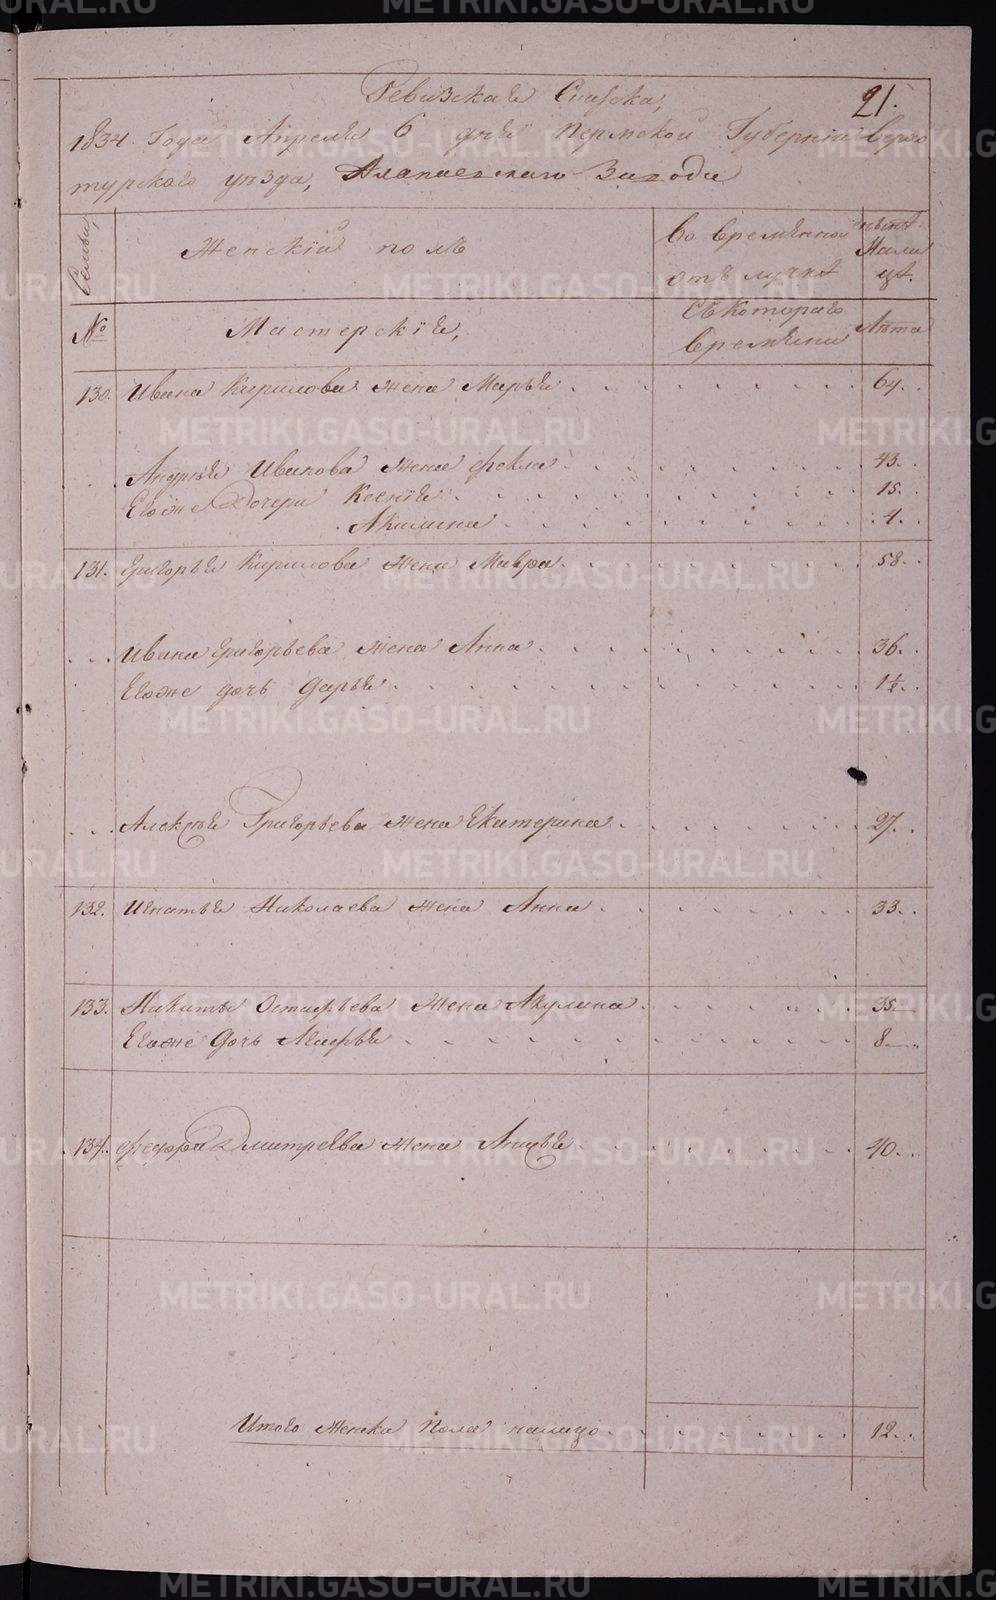 21.
Ревизская Сказка,
1834. Года Апреля 6 дня Пермской Губерніи Верхо
турского уѣзда, Алапаевского Завода
Семьи
Женскій полъ
Во временной
отъ лучкѣ
нынѣ
На ли
цѣ.
№
Мастерскіе,
Съ Которого
времяни
Лѣта
130. Ивана Кирилова жена Марья 64.
Андрея Иванова жена Фекла 43.
Егоже Дочери Ксенія 15.
Акилина 4.
131. Григорья Кирилова жена Мавра 58.
Ивана Григорьева жена Анна 36.
Егоже дочь Дарья 1½.
Алексея Григорьева жена Екатерина 27.
132. Игнатья Николаева жена Анна 33.
133. Никиты Остафьева жена Акулина 35.
Егоже дочь Агафья 8.
134. Федора Дмитрева жена 40.
Итого женска пола налицо 12.
METRIKI.GASO-URAL.RU